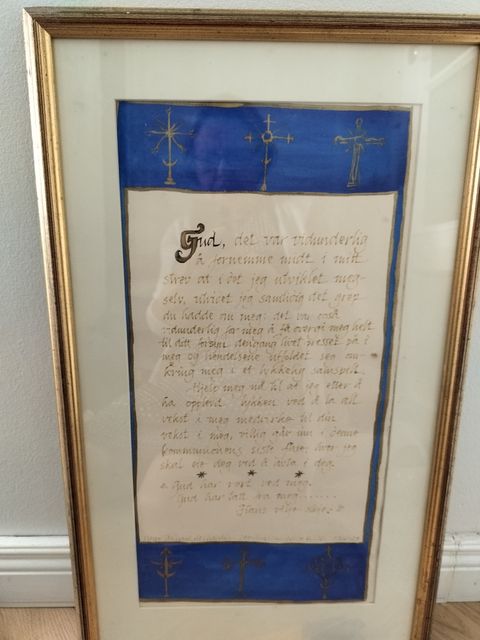 Gud, det var vidunderlig
å fornemme midt i mitt
strev at i det jeg utviklet meg
selv, utviklet jeg samtidig det grep
du hadde om meg: det var også
vidunderlig for meg å få overgi meg helt
til ditt forsyn dengang livet presset på i
meg og hendelsene utfoldet seg om-
kring meg i et lykkelig samspill.
Hjelp meg nå til at jeg etter å
ha opplevd lykken ved å la all
vekst i meg medvirke til din
vekst i meg, villig går inn i denne
kommunionens siste fase, hvor jeg
skal eie deg ved å i deg.
Gud har vært ved meg.
Gud har tatt fra meg......
Hans vilje skje.